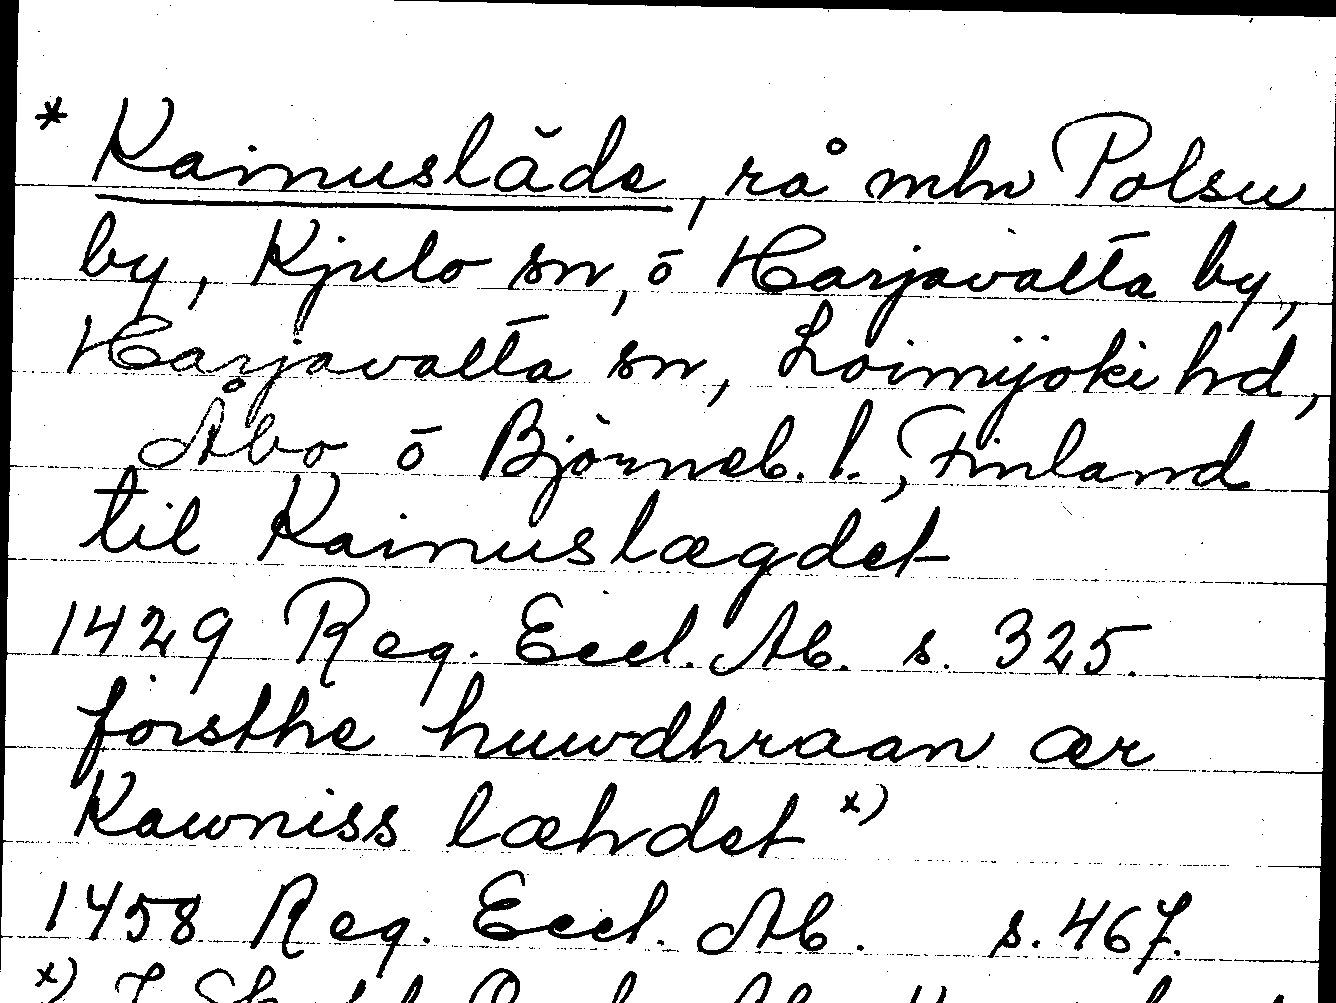 * Kainuslăde, rå mln Polsu
by, Kjulo sn, ō Harjavalta by,
Harjavalta sn, Loimijoki hd,
Åbo ō Björneb. l., Finland
til Kainuslægdet
1429 Reg. Eccl. Ab. s. 325.
försthe huwdhraan ær
Kawniss læhdet x)
1458 Reg. Eccl. Ab. s. 467.
x)